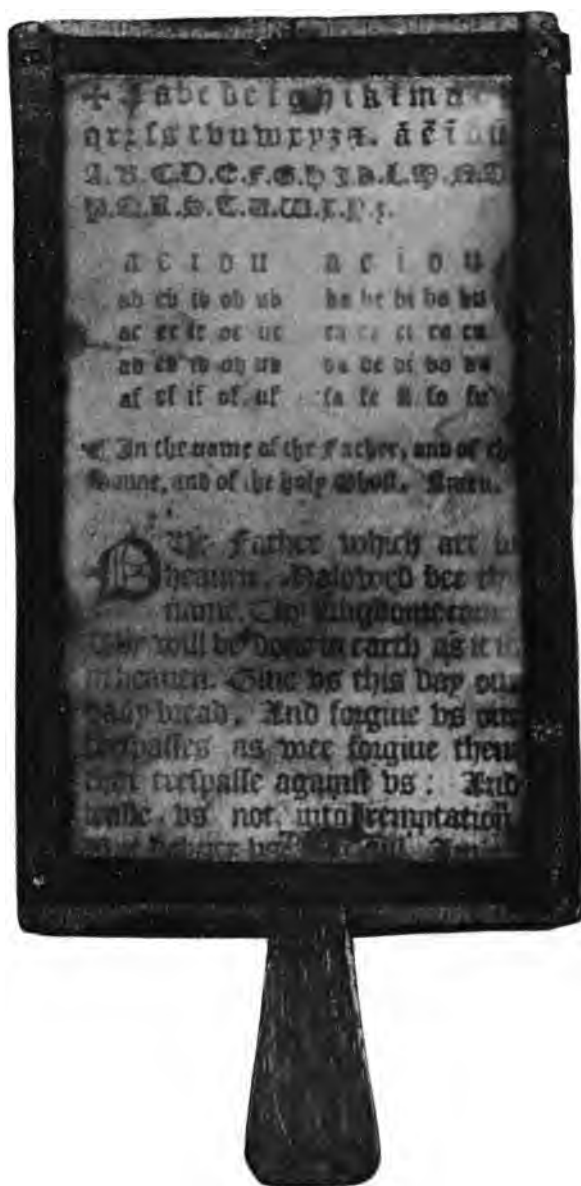 ✠ A a b c d e f g h i k l m n
q r ꝛ ſ s t v u w x y z ꝛ. ā ē ī ō ū
A. B. C. D. E. F. G. H J. K. L. M. N. O
P. Q. R. S. T. U. W. X. Y. Z.
a e i o u a e i o u
ab eb ib ob ub ba be bi bo bu
ac ec ic oc uc ca ce ci co cu
ad ed id od ud da de di do du
af ef if of uf fa fe fi fo fu
In the name of the Father, and of the
Sonne, and of the holy Ghost. Amen.
OUr Father which art in
heauen, Halowed bee thy
name. Thy kingdome come.
Thy will be done in earth as it is
in heauen. Giue vs this day our
daily bread. And forgiue vs our
treſpaſſes as wee forgiue them
that treſpaſſe againſt vs: And
leade vs not into temptation
deliuer vs